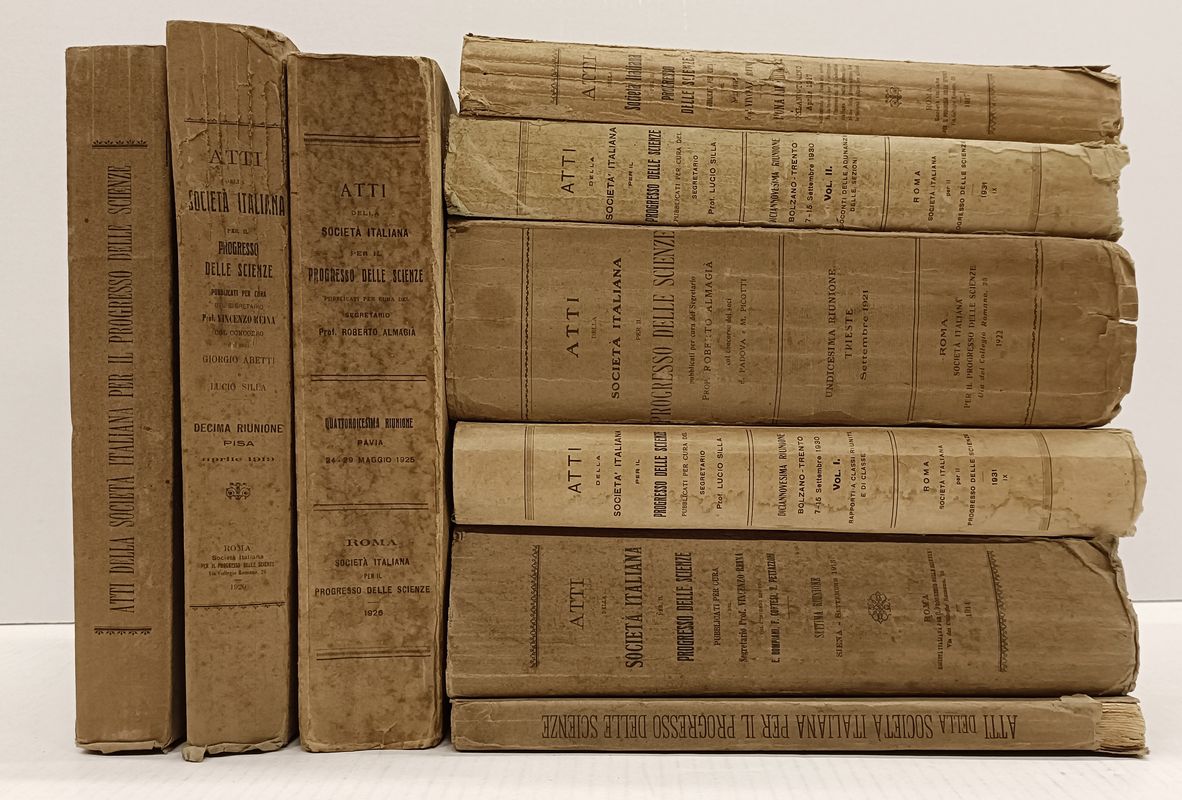 ATTI DELLA SOCIETÀ ITALIANA PER IL PROGRESSO DELLE SCIENZE
ATTI
DELLA
SOCIETÀ ITALIANA
PER IL
PROGRESSO
DELLE SCIENZE
PUBBLICATI PER CURA
DEL SEGRETARIO
Prof. VINCENZO REINA
COL CONCORSO
GIORGIO ABETTI
LUCIO SILLA
DECIMA RIUNIONE
PISA
aprile 1919
ROMA
Società Italiana
PER IL PROGRESSO DELLE SCIENZE
Via Collegio Romano, 26
1920
ATTI
DELLA
SOCIETÀ ITALIANA
PER IL
PROGRESSO DELLE SCIENZE
PUBBLICATI PER CURA DEL
SEGRETARIO
Prof. ROBERTO ALMAGIÀ
QUATTORDICESIMA RIUNIONE
PAVIA
24-29 MAGGIO 1925
ROMA
SOCIETÀ ITALIANA
PER IL
PROGRESSO DELLE SCIENZE
1926
ATTI
Società Italiana
PROGRESSO
DELLE SCIENZE
Aprile 1917
ATTI
DELLA
SOCIETA' ITALIANA
PER IL
PROGRESSO DELLE SCIENZE
PUBBLICATI PER CURA DEL
SEGRETARIO
Prof. LUCIO SILLA
DICIANNOVESIMA RIUNIONE
BOLZANO-TRENTO
7-15 Settembre 1930
Vol. II.
DELLE ADUNANZE
DELLE SEZIONI
ROMA
SOCIETÀ ITALIANA
per il
PROGRESSO DELLE SCIENZE
1931
IX
ATTI
DELLA
SOCIETÀ ITALIANA
PER IL
PROGRESSO DELLE SCIENZE
pubblicati per cura del Segretario
PROF. ROBERTO ALMAGIÀ
col concorso dei soci
E. PADOVA e M. PICOTTI
UNDICESIMA RIUNIONE
TRIESTE
Settembre 1921
ROMA
SOCIETÀ ITALIANA
PER IL PROGRESSO DELLE SCIENZE
Via del Collegio Romano, 26
1922
ATTI
DELLA
SOCIETA' ITALIANA
PER IL
PROGRESSO DELLE SCIENZE
PUBBLICATI PER CURA DEL
SEGRETARIO
Prof. LUCIO SILLA
DICIANNOVESIMA RIUNIONE
BOLZANO-TRENTO
7-15 Settembre 1930
Vol. I.
RAPPORTI A CLASSI RIUNITE
E DI CLASSE
ROMA
SOCIETÀ ITALIANA
per il
PROGRESSO DELLE SCIENZE
1931
IX
ATTI
DELLA
SOCIETÀ ITALIANA
PER IL
PROGRESSO DELLE SCIENZE
PUBBLICATI PER CURA
DEL
Segretario Prof. VINCENZO REINA
SETTIMA RIUNIONE
SIENA - SETTEMBRE 1913
ROMA
1914
ATTI DELLA SOCIETÀ ITALIANA PER IL PROGRESSO DELLE SCIENZE